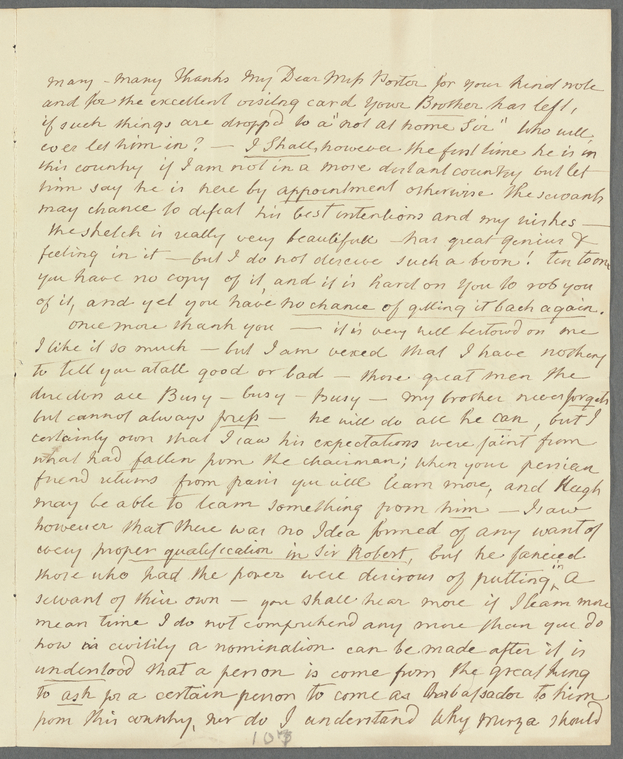 Many - many Thanks My Dear Miss Porter for your kind note
and for the excellent visiting card your Brother has left,
if such things are dropp'd to a "not at home Sir" who will
ever let him in? — I Shall, however the first time he is in
this country if I am not in a more distant country but let
him say he is here by appointment otherwise the servants
may chance to defeat his best intentions and my wishes —
the sketch is really very beautifull - has great genius &
feeling in it — but I do not deserve such a boon! ten to one
you have no copy of it, and it is hard on you to rob you
of it, and yet you have no chance of getting it back again.
once more thank you — it is very well bestow'd on me
I like it so much — but I am vexed that I have nothing
to tell you atall good or bad — those great men the
directors are Busy - busy - busy - my brother never forgets
but cannot always press — he will do all he can, but I
certainly own that I saw his expectations were faint from
what had fallen from the chairman; when your persian
friend returns from paris you will learn more, and Hugh
may be able to learn something from him — I saw
however that there was no Idea formed of any want of
every proper qualification in Sir Robert, but he fancied
those who had the power were desirous of putting in a
servant of their own — you shall hear more if I learn more
mean time I do not comprehend any more than you do
how in civility a nomination can be made after it is
understood that a person is come from the great king
to ask for a certain person to come as Ambassador to him
from this country, nor do I understand why Mirza should
107